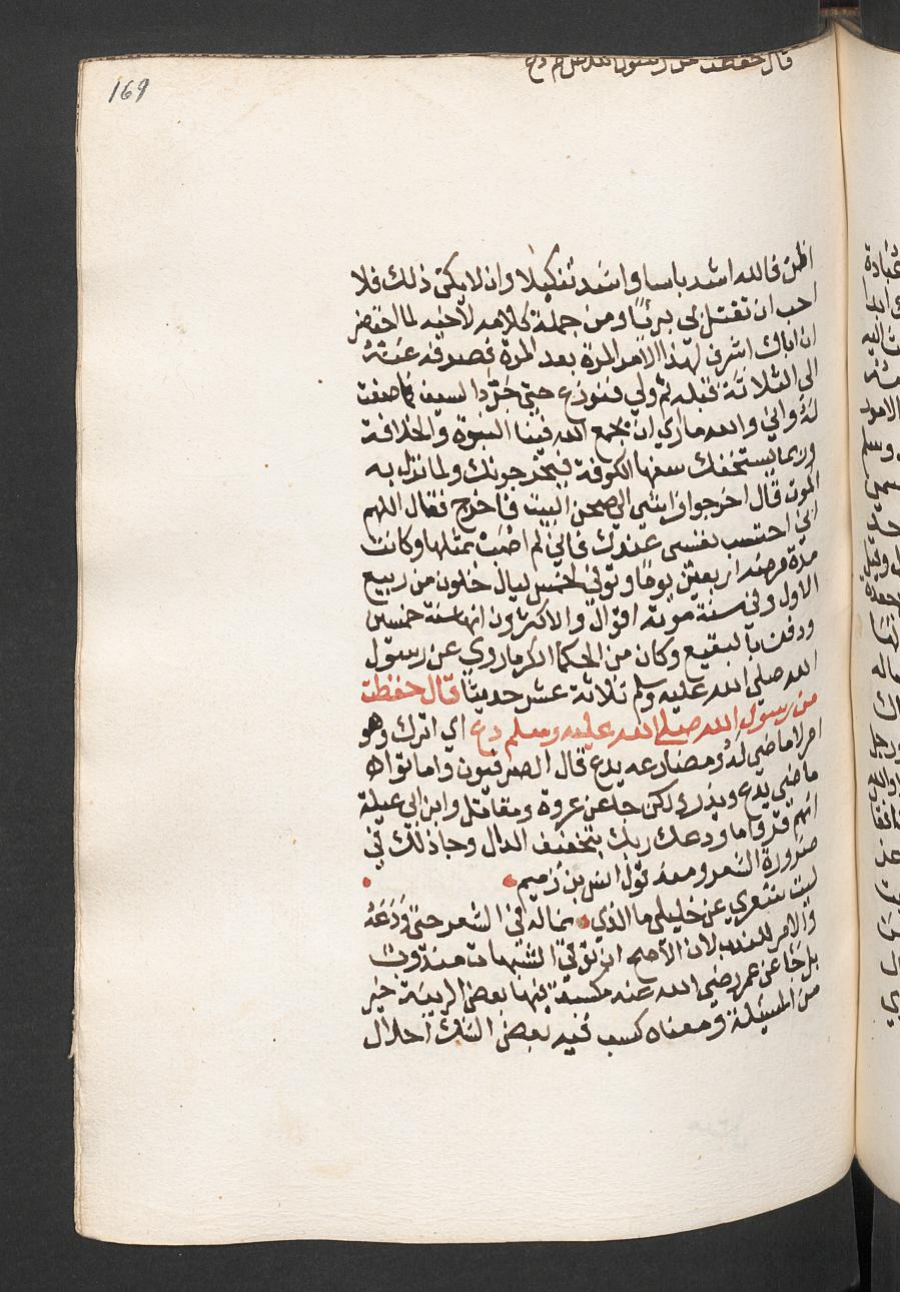 169
قال حفظت من رسول الله ص م دع
اظن فالله اشد باسا واشد تنكيلا وان لا يكن ذلك فلا
احب ان تقتل بي بريًا ومن جملة كلامه لاخيه لما احتضر
ان اباك اشرف لهذا الامر المرة بعد المرة فصرفه عنه
الى الثلاثة قبله ثم ولي فنوزع حتى جرد السيف فما صفت
له واني والله ما اري ان يجمع الله فينا النبوة والخلافة
وربما يستخفك سفها الكوفة فيخرجونك ولما نزل به
الموت قال اخرجوا فراشي الى صحن البيت فاخرج فقال اللهم
اني احتسب نفسي عندك فاني لم اصب بمثلها وكانت
مدة مرضه اربعين يوما وتوفي لخمس ليال خلون من ربيع
الاول وفي سنة موته اقوال والاكثرون انها سنة خمسين
ودفن بالبقيع وكان من الحكما الكرما روي عن رسول
الله صلى الله عليه وسلم ثلاثة عشر حديثا قال حفظت
من رسول الله صلى الله عليه وسلم دع اي اترك وهو
امر لا ماضي له ومضارعه يدع قال الصرفيون واماتوا
ماضي يدع ويذر لكن جا عن عروة ومقاتل وابن ابي عبلة
انهم قروا ما ودعك ربك بتخفيف الدال وجا ذلك في
ضرورة الشعر ومنه قول انس بن زنيم
ليت شعري عن خليلي ما الذي غاله في الشعر حتى ودعه
والامر للندب لان الاصح ان توقي الشبهات مندوب
بل جا عن عمر رضي الله عنه مكسبة فيها بعض الريبة خير
من المسئلة ومعناه كسب فيه بعض الشك احلال